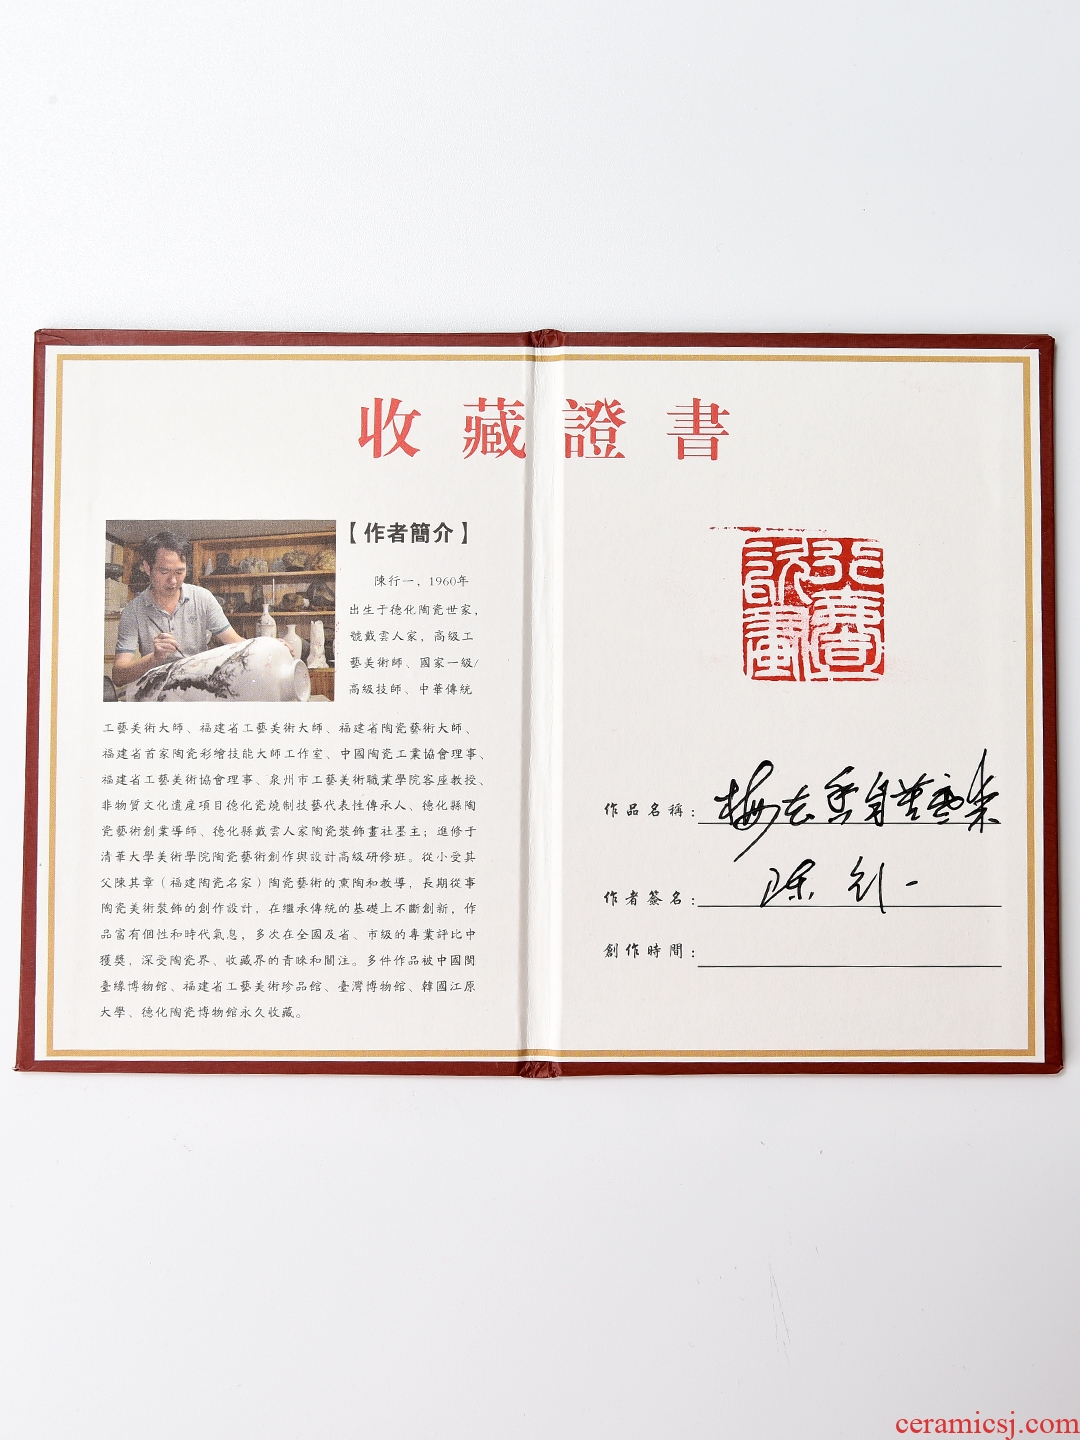 收藏證書
【作者簡介】
陳行一，1960年
出生于德化陶瓷世家，
號戴雲人家，高級工
藝美術師、國家一級/
高級技師、中華傳統
工藝美術大師、福建省工藝美術大師、福建省陶瓷藝術大師、
福建省首家陶瓷彩繪技能大師工作室、中國陶瓷工業協會理事、
福建省工藝美術協會理事、泉州市工藝美術職業學院客座教授、
非物質文化遺産項目德化瓷燒制技藝代表性傳承人、德化縣陶
瓷藝術創業導師、德化縣戴雲人家陶瓷裝飾畫社墨主；進修于
清華大學美術學院陶瓷藝術創作與設計高級研修班。從小受其
父陳其章（福建陶瓷名家）陶瓷藝術的熏陶和教導，長期從事
陶瓷美術裝飾的創作設計，在繼承傳統的基礎上不斷創新，作
品富有個性和時代氣息，多次在全國及省、市級的專業評比中
獲獎，深受陶瓷界、收藏界的青睞和關注。多件作品被中國閩
臺緣博物館、福建省工藝美術珍品館、臺灣博物館、韓國江原
大學、德化陶瓷博物館永久收藏。
作品名稱：梅花香自苦寒來
作者簽名：陈行一
創作時間：
ceramicsj.com